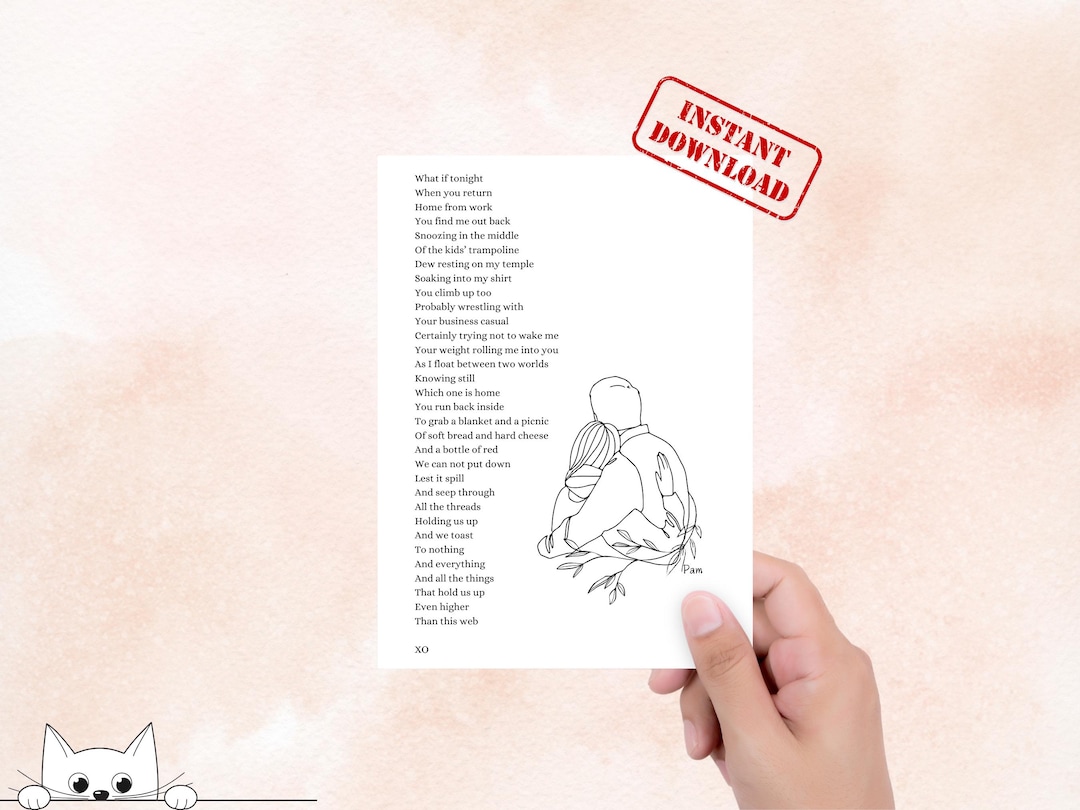 INSTANT
DOWNLOAD
What if tonight
When you return
Home from work
You find me out back
Snoozing in the middle
Of the kids’ trampoline
Dew resting on my temple
Soaking into my shirt
You climb up too
Probably wrestling with
Your business casual
Certainly trying not to wake me
Your weight rolling me into you
As I float between two worlds
Knowing still
Which one is home
You run back inside
To grab a blanket and a picnic
Of soft bread and hard cheese
And a bottle of red
We can not put down
Lest it spill
And seep through
All the threads
Holding us up
And we toast
To nothing
And everything
And all the things
That hold us up
Even higher
Than this web
XO
Pam